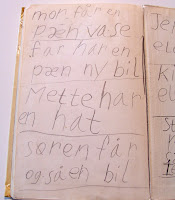 mor får en
pæn vase
far har en
pæn ny bil
Mette har
en hat
søren får
også en bil
Je
el
ki
el